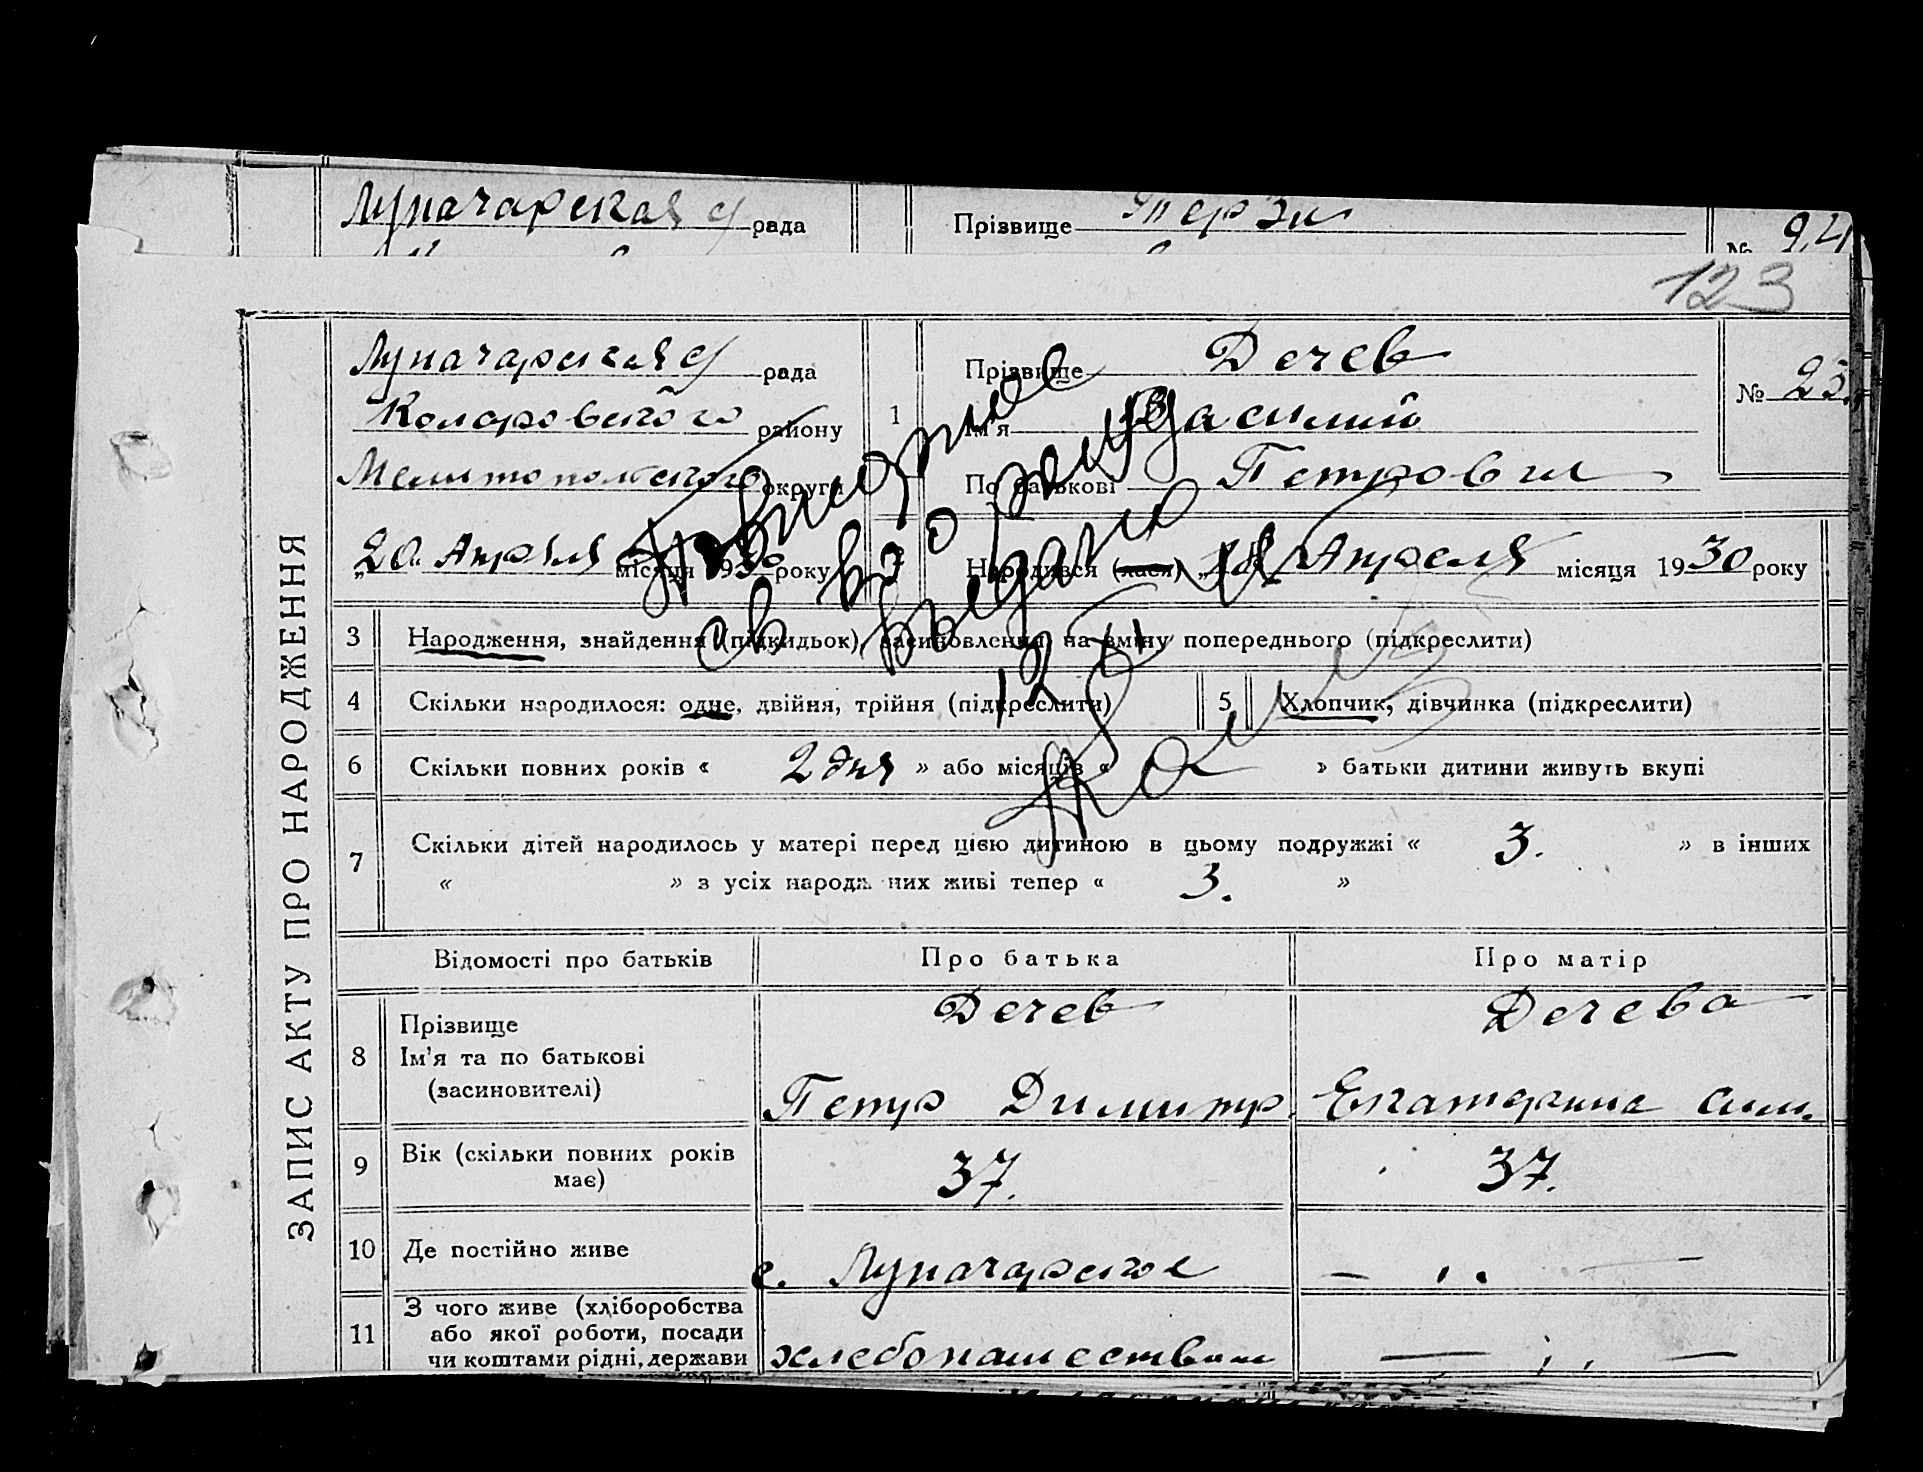 Луначарская с/ рада
Прізвище Терзи
№ 94
123
ЗАПИС АКТУ ПРО НАРОДЖЕННЯ
Луначарская с/ рада
Коларовского району
Мелитопольского округи
„20“ Апреля місяця 1930 року
1
Прізвище Дечев
Ім'я Василий
По батькові Петрович
№ 25.
2
Народився (лася) „18“ Апреля місяця 1930 року
3 Народження, знайдення (підкидьок), засиновлення, на зміну попереднього (підкреслити)
4 Скільки народилося: одне, двійня, трійня (підкреслити)
5 Хлопчик, дівчинка (підкреслити)
6 Скільки повних років « 2 дня » або місяців « » батьки дитини живуть вкупі
7 Скільки дітей народилось у матері перед цією дитиною в цьому подружжі « 3. » в інших
« » з усіх народж них живі тепер « 3. »
Відомості про батьків
Про батька
Про матір
8
Прізвище
Ім'я та по батькові
(засиновителі)
Дечев
Петр Димитр.
Дечева
Екатерина Сим.
9 Вік (скільки повних років
має)
37.
37.
10 Де постійно живе
с. Луначарское
— „ —
11
З чого живе (хліборобства
або якої роботи, посади
чи коштами рідні, держави
хлебопашеством
— „ —